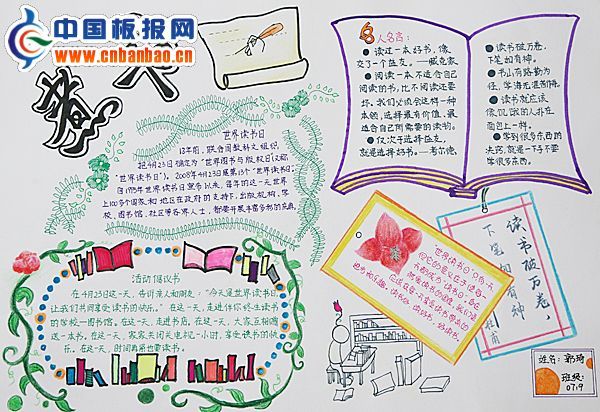 中国板报网
www.cnbanbao.cn
世界读书日
13年前,联合国教科文组织
把4月23日确定为“世界图书与版权日(又称
“世界读书日”)。2008年4月23日是第13个“世界读书日”。
自1995年世界读书日宣布以来,每年的这一天世界
上100多个国家和地区在政府的支持下,出版机构、学
校、图书馆、社区等各界人士,都要开展丰富多彩的庆典
名人名言:
读过一本好书,像
交了一个益友。——臧克家
阅读一本不适合自己
阅读的书,比不阅读还要
坏。我们必须会这样一种
本领,选择最有价值、最
适合自己所需要的读物。
仅次于选择益友,
就是选择好书。——考尔德
读书破万卷,
下笔如有神。
书山有路勤为
径,学海无涯
读书就应该
像饥饿的人扑在
面包上一样。
学到很多东西的
诀窍,就是一下子不要
学很多东西。
活动倡议书
在4月23日这一天,告诉亲人和朋友:“今天是世界读书日,
让我们共同享受读书的快乐。”在这一天,走进伴你终生读书
的学校—图书馆。在这一天,走进书店。在这一天,大家互相赠
送一本书。在这一天,家家关闭电视一小时,享受读书的快
乐。在这一天,时间再紧也要读书。
读书破万卷,
下笔如有神
杜甫
姓名:郭琦
班级:
0719